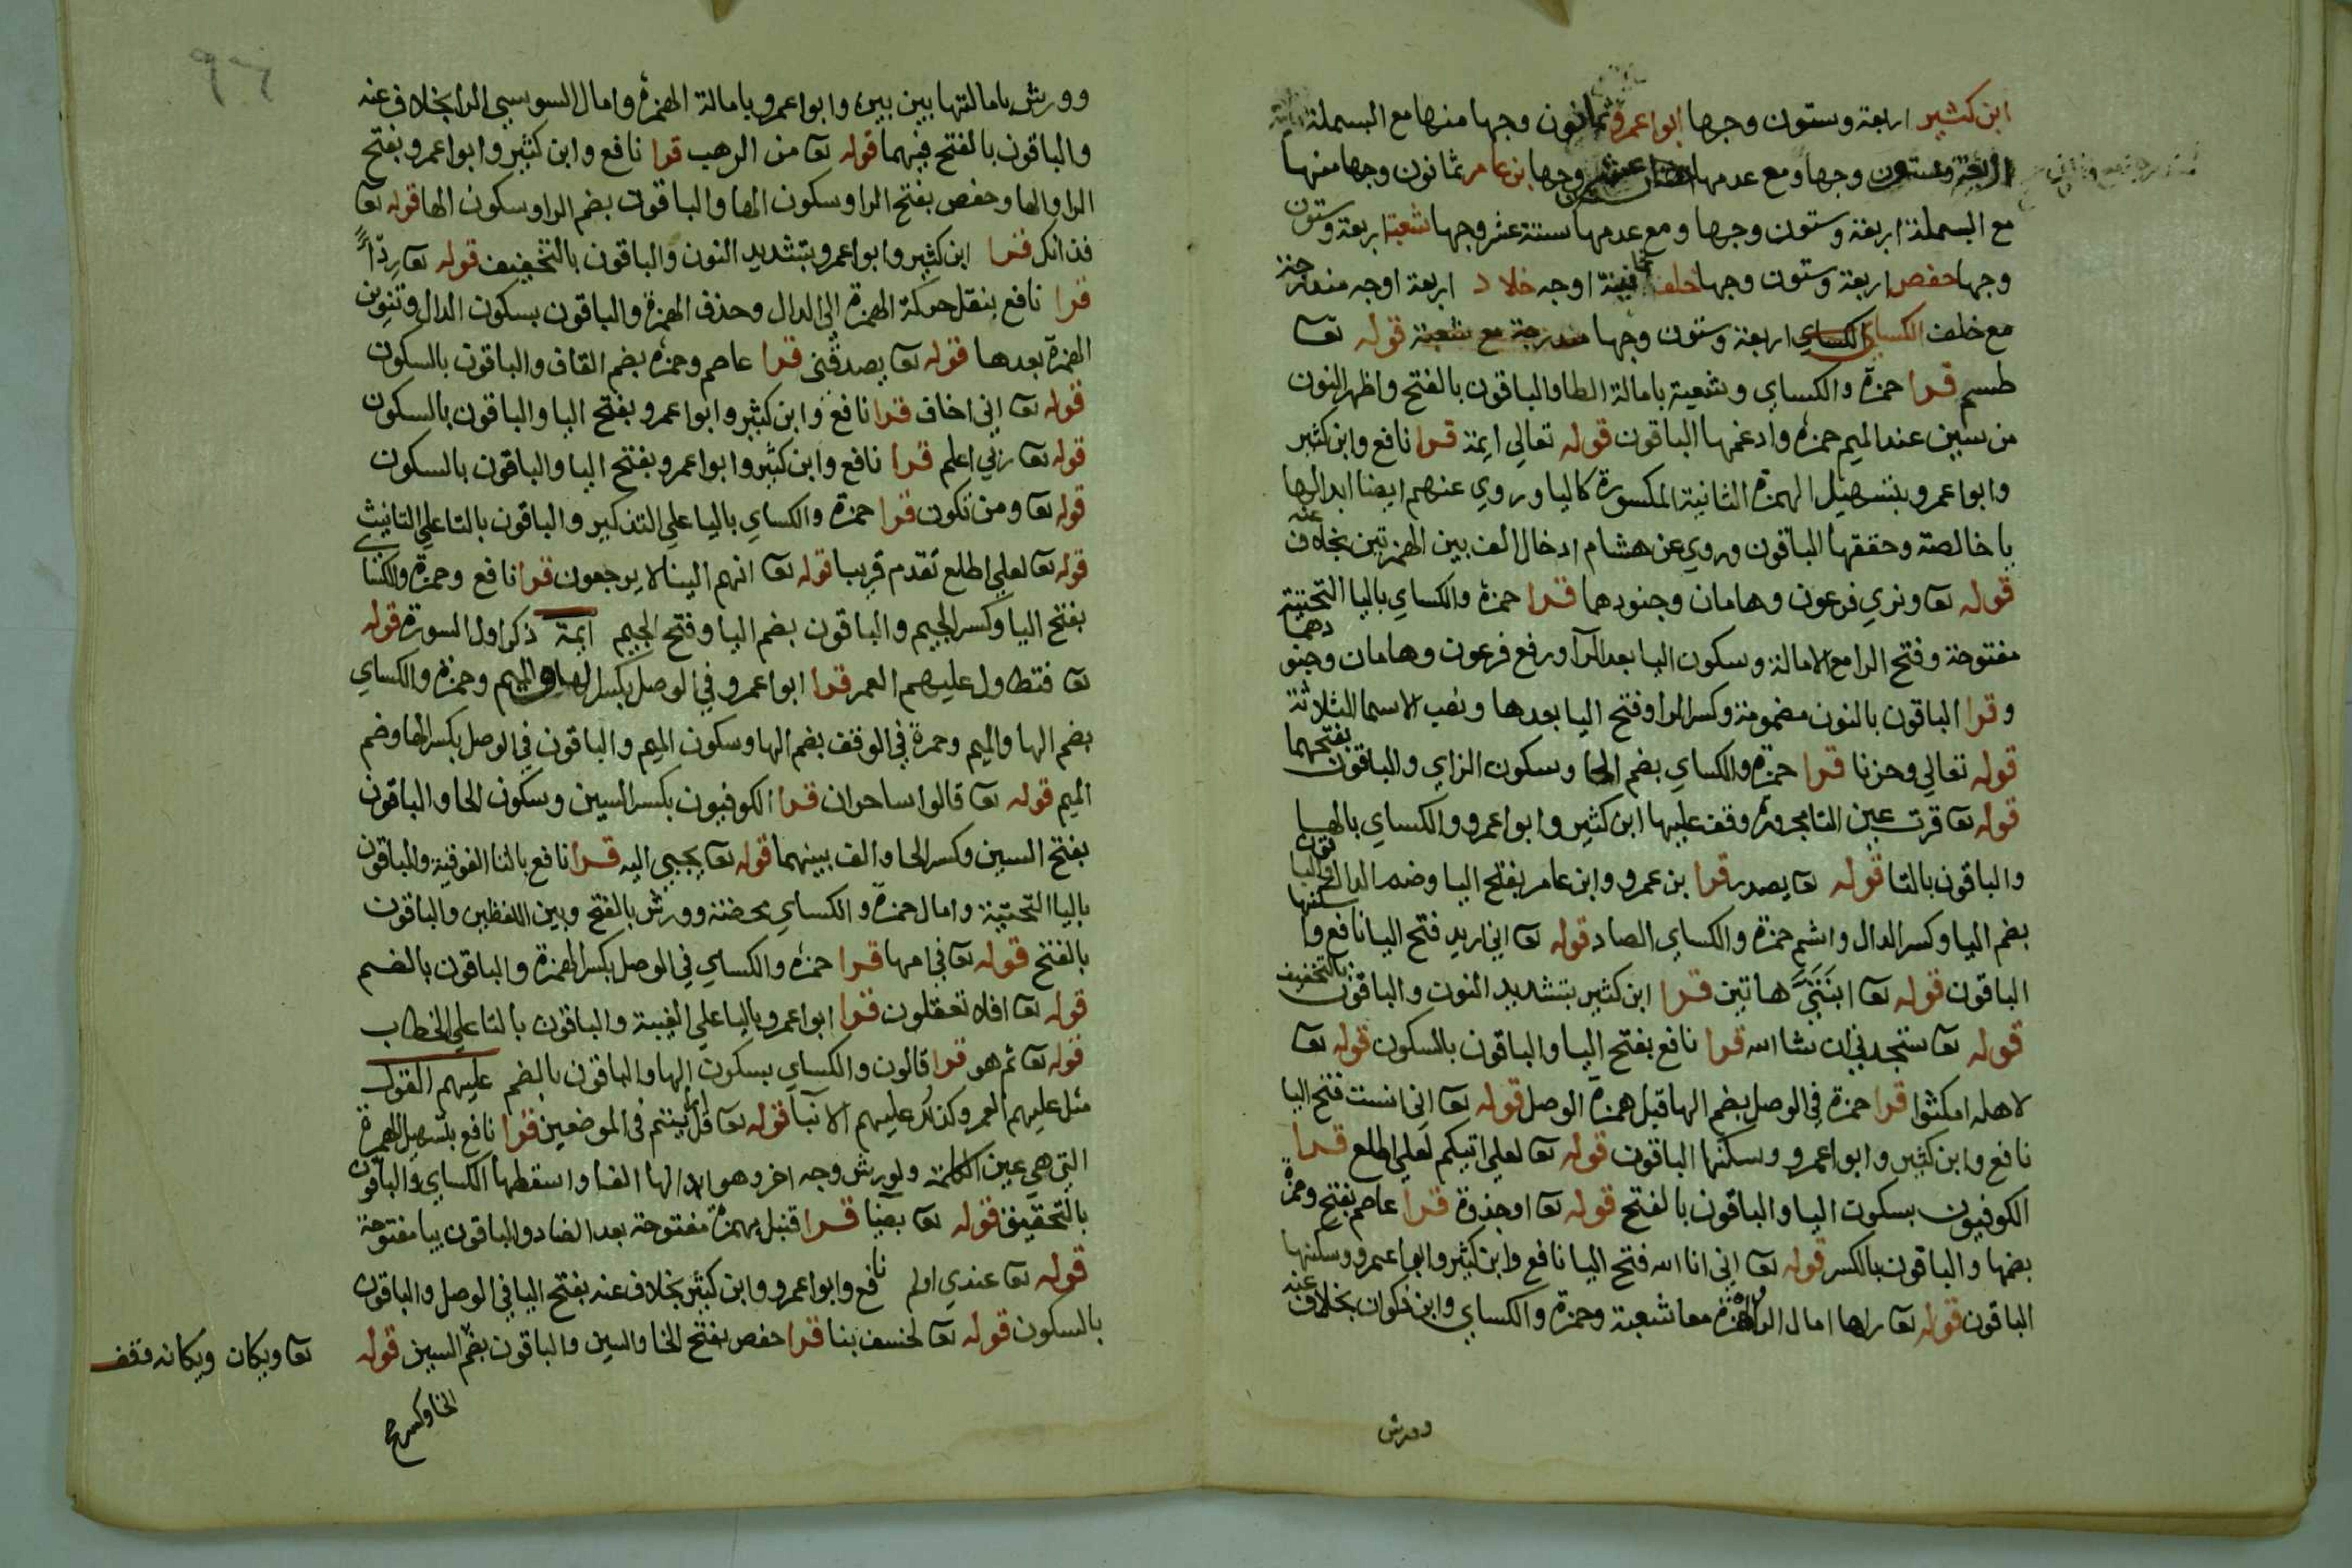 ابن كثير اربعة وستون وجها ابوا عمرو ثمانون وجها منها مع البسملة
اربعة وستون وجها ومع عدمها ستة عشر وجها بن عامر ثمانون وجها منها
مع البسملة اربعة وستون وجها ومع عدمها ستة عشر وجها شعبة اربعة وستون
وجها حفص اربعة وستون وجها خلف ثمانية اوجه خلاد اربعة اوجه مندرجة
مع خلف الكساي الكساي اربعة وستون وجها مندرجة مع شعبة قوله تعا
طسم قرا حمزة والكساي وشعبة بامالة الطا والباقون بالفتح واظهر النون
من سين عند الميم حمزة وادغمها الباقون قوله تعالي ايمة قرا نافع وابن كثير
وابوا عمرو بتسهيل الهمزة الثانية المكسورة كاليا وروي عنهم ايضا ابدالها
يا خالصة وحققها الباقون وروي عن هشام ادخال الف بين الهمزتين بخلاف عنه
قوله تعا ونري فرعون وهامان وجنودهما قرا حمزة والكساي باليا التحتية
مفتوحة وفتح الرا مع الامالة وسكون اليا بعد الرآ ورفع فرعون وهامان وجنودهما
وقرا الباقون بالنون مضمومة وكسر الرا وفتح اليا بعدها ونصب الاسما الثلاثة
قوله تعالي وحزنا قرا حمزة والكساي بضم الحا وسكون الزاي والباقون بفتحهما
قوله تعا قرت عين التا مجرورة وقف عليها ابن كثير وابوا عمرو والكساي بالها
والباقون بالتا قوله تعا يصدر قرا بن عمرو وابن عامر بفتح اليا وضم الدال والباقون
بضم اليا وكسر الدال واشم حمزة والكساي الصاد قوله تعا اني اريد فتح اليا نافع وسكنها
الباقون قوله تعا ابنتيَّ هاتين قرا ابن كثير بتشديد النون والباقون بالتخفيف
قوله تعا ستجدني ان شا الله قرا نافع بفتح اليا والباقون بالسكون قوله تعا
لاهله امكثوا قرا حمزة في الوصل بضم الها قبل همزة الوصل قوله تعا اني انست فتح اليا
نافع وابن كثير وابوا عمرو وسكنها الباقون قوله تعا لعلي اتيكم لعلي اطلع قرا
الكوفيون بسكون اليا والباقون بالفتح قوله تعا او جذوة قرا عاصم بفتح وحمزة
بضمها والباقون بالكسر قوله تعا اني انا الله فتح اليا نافع وابن كثير وابوا عمرو وسكنها
الباقون قوله تعا راها امال الرا والهمزة معا شعبة وحمزة والكساي وابن ذكوان بخلاف عنه
وورش
وورش بامالتها بين بين وابوا عمرو بامالة الهمزة وامال السوسي الرا بخلاف عنه
والباقون بالفتح فيهما قوله تعا من الرهب قرا نافع وابن كثير وابوا عمرو بفتح
الرا والها وحفص بفتح الرا وسكون الها والباقون بضم الرا وسكون الها قوله تعا
فذانك قرا ابن كثير وابوا عمرو بتشديد النون والباقون بالتخفيف قوله تعا رِدْءًا
قرا نافع بنقل حركة الهمزة الي الدال وحذف الهمزة والباقون بسكون الدال وتنوين
الهمزة بعدها قوله تعا يصدقني قرا عاصم وحمزة بضم القاف والباقون بالسكون
قوله تعا اني اخاف قرا نافع وابن كثير وابوا عمرو بفتح اليا والباقون بالسكون
قوله تعا ربي اعلم قرا نافع وابن كثير وابوا عمرو بفتح اليا والباقون بالسكون
قوله تعا ومن تكون قرا حمزة والكساي باليا علي التذكير والباقون بالتا علي التانيث
قوله تعا لعلي اطلع تقدم قريبا قوله تعا انهم الينا لا يرجعون قرا نافع وحمزة والكساي
بفتح اليا وكسر الجيم والباقون بضم اليا وفتح الجيم ايمة ذكر اول السورة قوله
تعا فتطاول عليهم العمر قرا ابوا عمرو في الوصل بكسر الها والميم وحمزة والكساي
بضم الها والميم وحمزة في الوقف بضم الها وسكون الميم والباقون في الوصل بكسر الها وضم
الميم قوله تعا قالوا ساحران قرا الكوفيون بكسر السين وسكون الحا والباقون
بفتح السين وكسر الحا والف بينهما قوله تعا يجبي اليه قرا نافع بالتا الفوقية والباقون
باليا التحتية وامال حمزة والكساي محضة وورش بالفتح وبين اللفظين والباقون
بالفتح قوله تعا في امها قرا حمزة والكساي في الوصل بكسر الهمزة والباقون بالضم
قوله تعا افلا تعقلون قرا ابوا عمرو باليا علي الغيبة والباقون بالتا علي الخطاب
قوله تعا ثم هو قرا قالون والكساي بسكون الها والباقون بالضم عليهم القول
مثل عليهم العمر وكذلك عليهم الانبآ قوله تعا قل ارايتم في الموضعين قرا نافع بتسهيل الهمزة
التي هي عين الكلمة ولورش وجه اخر وهو ابدالها الفا واسقطها الكساي والباقون
بالتحقيق قوله تعا بضيا قرا قنبل بهمزة مفتوحة بعد الضاد والباقون بيا مفتوحة
قوله تعا عندي اولم نافع وابوا عمرو وابن كثير بخلاف عنه بفتح اليا في الوصل والباقون
بالسكون قوله تعا لخسف بنا قرا حفص بفتح الخا والسين والباقون بضم السين قوله تعا ويكان ويكانه فقف
الخا وكسر